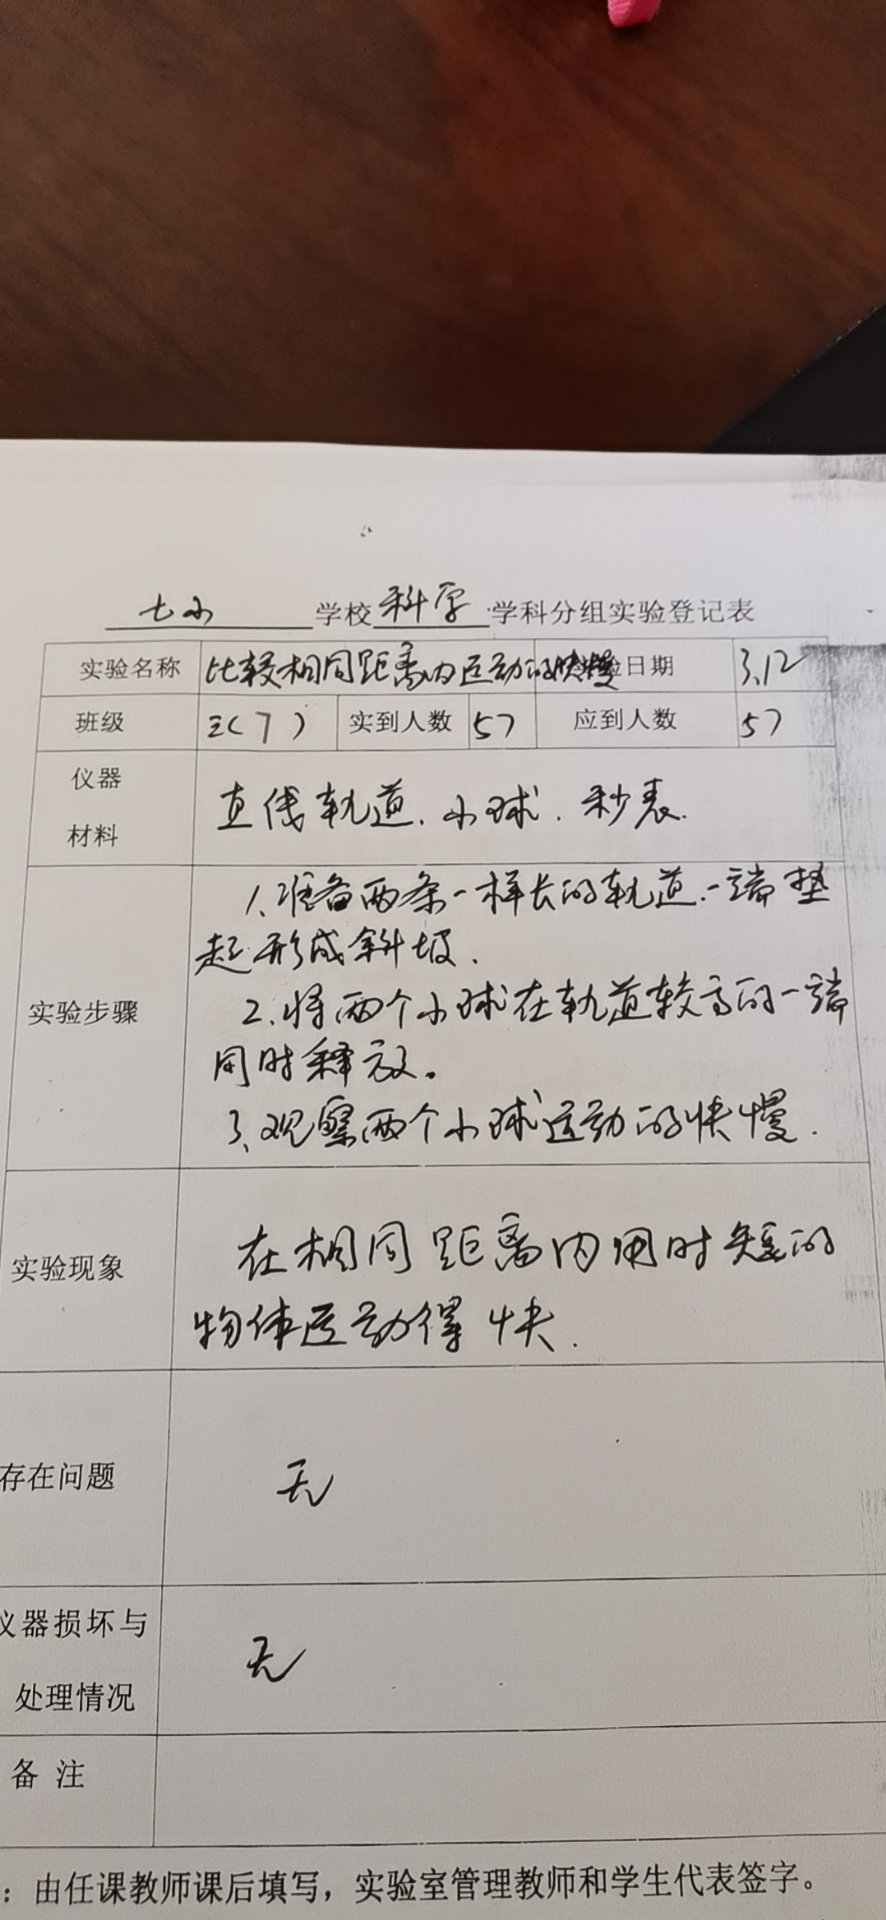 七小 学校 科学 学科分组实验登记表
实验名称 比较相同距离内运动的快慢 验日期 3.12
班级 三(7) 实到人数 57 应到人数 57
仪器
材料
直线轨道、小球、秒表.
实验步骤
1、准备两条一样长的轨道.一端垫
起形成斜坡.
2、将两个小球在轨道较高的一端
同时释放。
3、观察两个小球运动的快慢.
实验现象
在相同距离内用时短的
物体运动得快.
存在问题 无
仪器损坏与
处理情况
无
备 注
：由任课教师课后填写，实验室管理教师和学生代表签字。